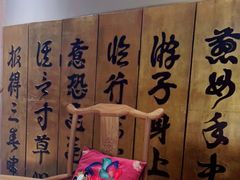 慈母手中
游子身上
临行
意恐迟
谁言寸草
报得三春